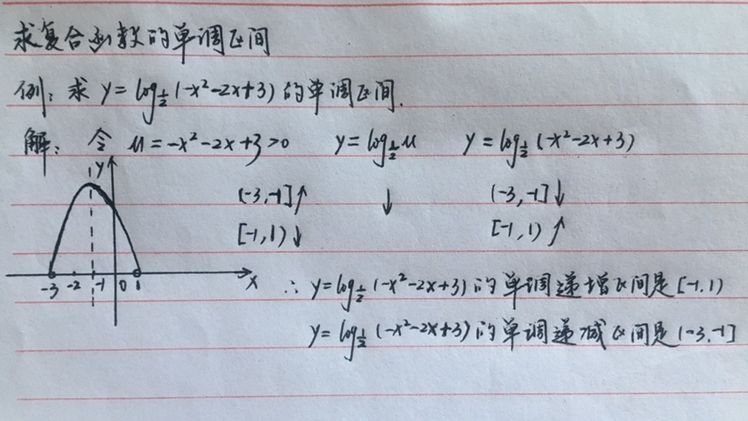 求复合函数的单调区间
例：求 y=log½(-x²-2x+3) 的单调区间.
解：令 u=-x²-2x+3>0 y=log½u y=log½(-x²-2x+3)
(-3,-1]↑ ↓ (-3,-1]↓
[-1,1)↓ [-1,1)↑
y
-3 -2 -1 0 1 x
∴ y=log½(-x²-2x+3) 的单调递增区间是[-1,1)
y=log½(-x²-2x+3) 的单调递减区间是(-3,-1]